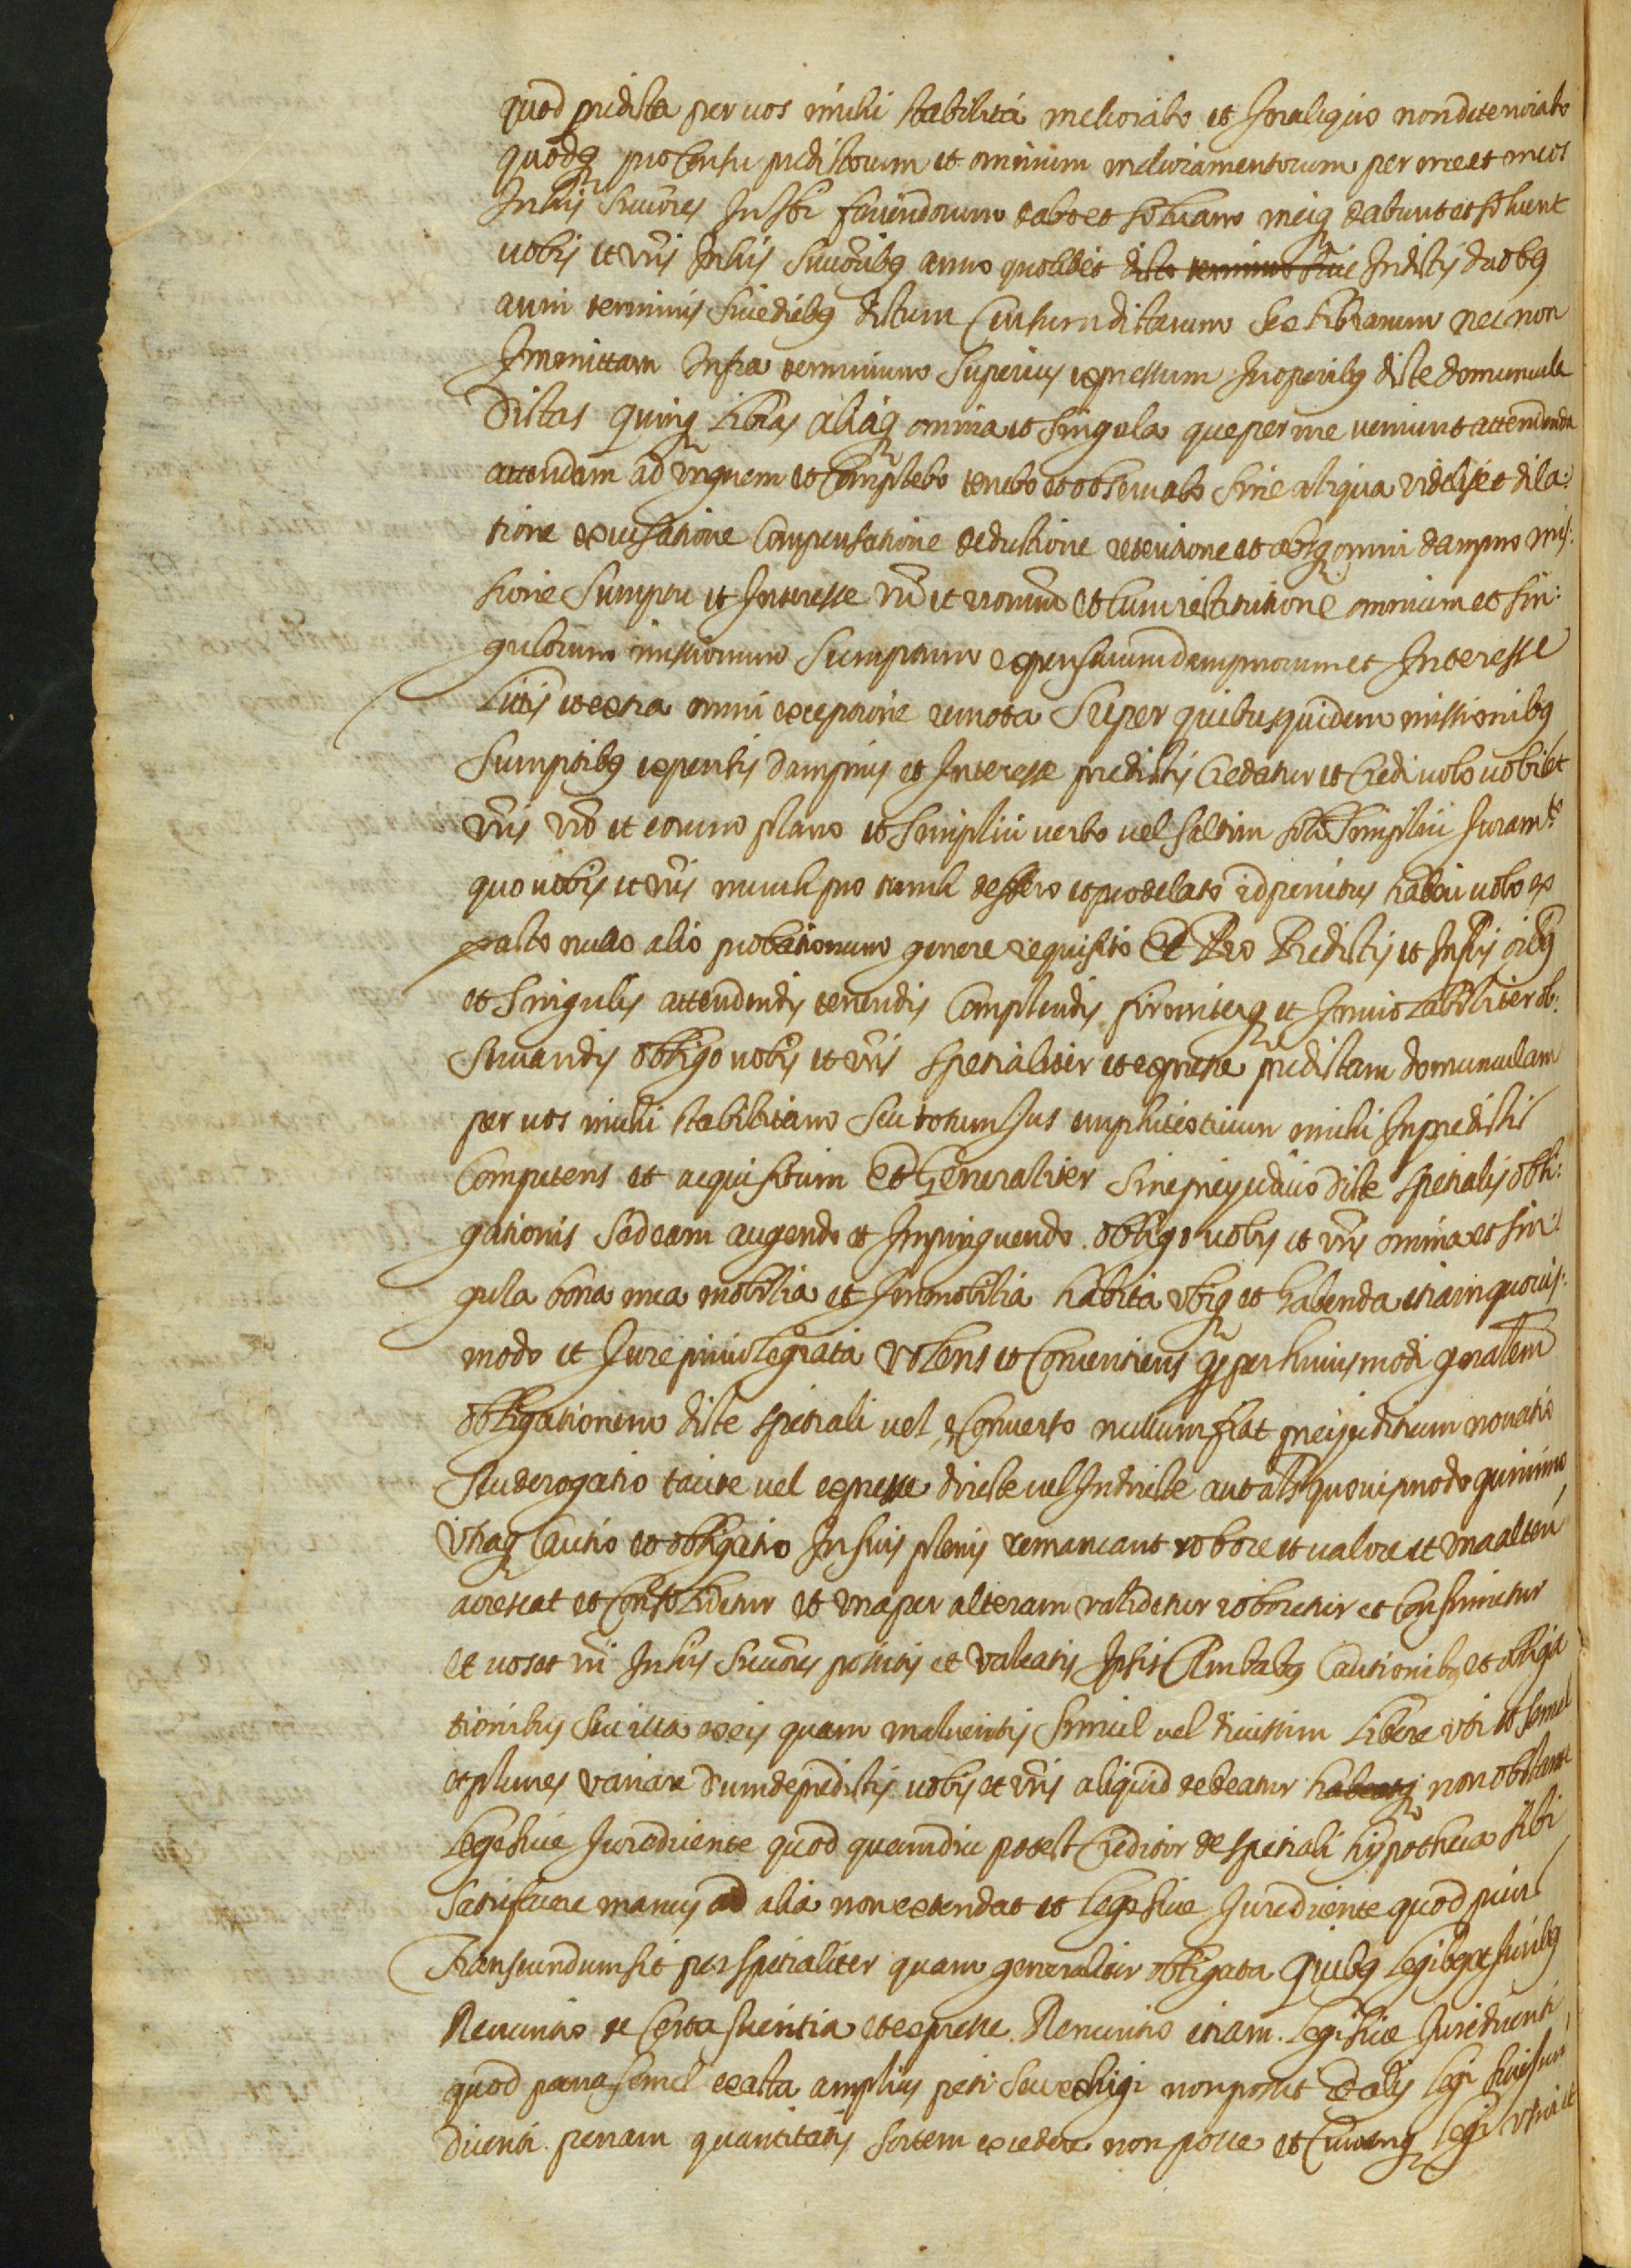 quod predicta per vos michi stabilita meliorabo et In aliquo non deteriorabo
quodq pro Censu predictorum et omnium melioramentorum per me et meos
In his Succores In Sbr faciendorum dabo et soluam meiq dabunt et soluent
vobis et vris In his Succoribq anno quolibet dicto termino siue In dictis duobq
anni terminis Siue diebq dictum Censum dictarum Sex Librarum nec non
Immittam Infra terminum Superius expressum In operibq dicte domuncule
Dictas quinq Libras aliaq omnia et Singula que per me veniunt attendenda
attendam ad Vnguem et Complebo tenebo et obseruabo Sine aliqua videlicet dila:
tione excusatione Compensatione deductione retentione et absq omni dampno mis:
sione Sumptu et Interesse vri et vrorum et Cum restitutione omnium et sin:
gulorum missionum Sumptuum expensarum dampnorum et Interesse
Litis et extra omni exceptione remota Super quibusquidem missionibq
Sumptibq expensis dampnis et Interesse predictis Credatur et Credi volo vobis et
vris vro et eorum plano et Simplici verbo vel saltim solo Simplici Juram.to
quo vobis et vris nunch pro tunch deffero et pro delato id penitus haberi volo ex
pacto nullo alio probationum genere requisito Et Pro Predictis et Infris oibq
et Singulis attendendis tenendis Complendis firmiterq et Inuiolabiliter ob:
seruandis obligo vobis et vris specialiter et expresse predictam domunculam
per vos michi stabilitam Seu totum Jus emphiteoticum michi In predictis
Competens et acquisitum Et Generaliter Sine preiudicio dicte specialis obli:
gationis Sed eam augendo et Impinguendo obligo vobis et vris omnia et sin:
gula bona mea mobilia et Immobilia habita vbiq et habenda etiam quouis:
modo et Jure priuilegiata Volens et Consentiens q per huiusmodi gnalem
obligationem dicte speciali vel e Conuerso nullum fiat preiudicium nouatio
Seu derogatio tacite vel expresse directe vel Indirecte aut als quouismodo quinimo
Vtraq Cautio et obligatio In suis plenis remaneant robore et valore et Vna alteri
acrescat et Consolidetur et Vna per alteram validetur roboretur et Confirmetur
et vos et vri In his Succores possitis et Valeatis Ipsis Ambabq Cautionibq et obliga
tionibus Siue illa ex eis quam malueritis Simul vel diuisim Libere vti et Semel
et plures Variare dum de predictis vobis et vris aliquid debeatur habeatq non obstante
Lege siue Jure dicente quod quamdiu potest Creditor de speciali hypotheca sibi
Satisfacere manus ad alia non extendat et Lege siue Jure dicente quod prius
Transeundum sit per specialiter quam generaliter obligata Quibq Legibq et Juribq
Renuntio de Certa scientia et expresse. Renuntio etiam Legi siue Juri dicenti
quod pena semel exacta amplius peti Seu exhigi non possit Et alij Legi siue Juri
dicenti penam quantitatis sortem excedere non posse et Cuicunq Legi Vsui et